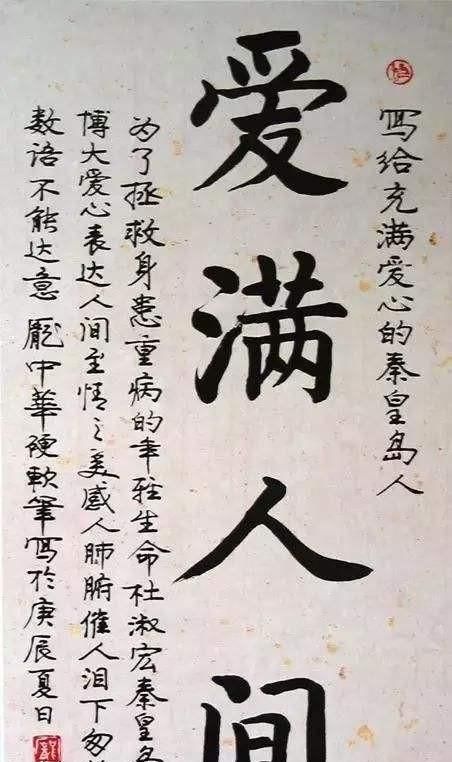 寫给充满爱心的秦皇岛人
爱满人间
为了拯救身患重病的年稚生命杜淑宏秦皇岛
博大爱心表达人间至情之美感人肺腑催人泪下匆
数语不能达意 龐中華硬軟筆寫於庚辰夏日